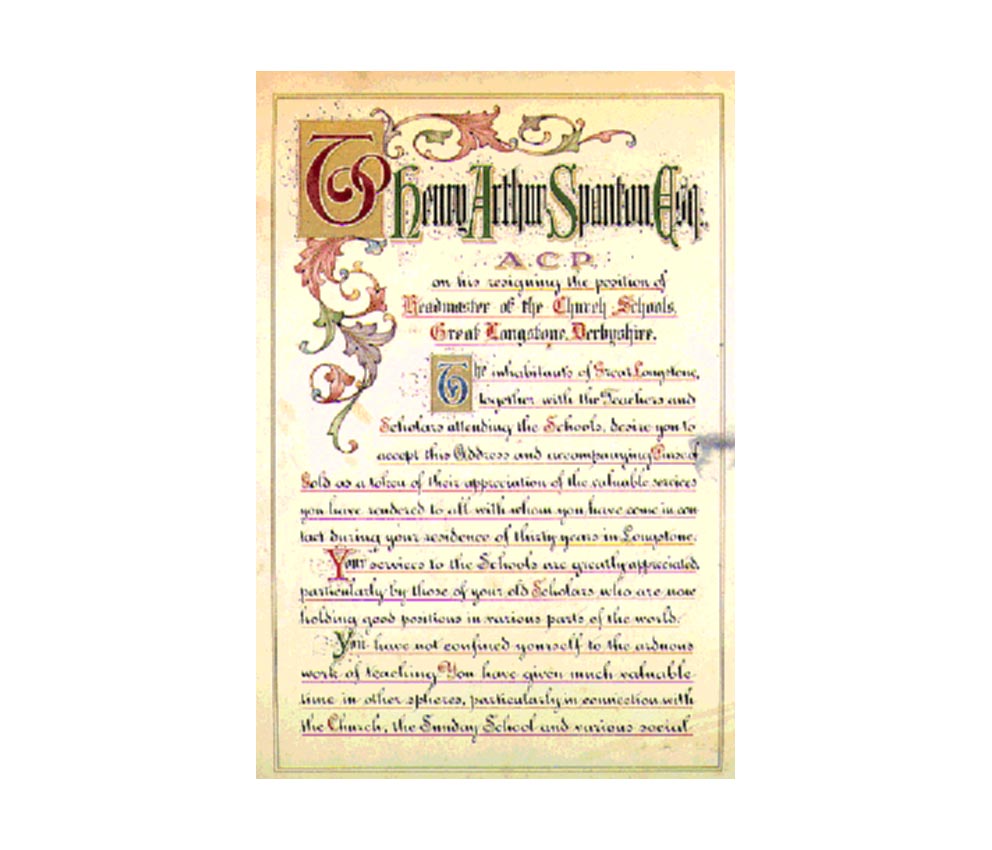 To Henry Arthur Spanton Esq.
A.C.P.
on his resigning the position of
Headmaster of the Church Schools,
Great Longstone, Derbyshire.
The inhabitants of Great Longstone,
together with the Teachers and
Scholars attending the Schools, desire you to
accept this Address and accompanying Purse of
Gold as a token of their appreciation of the valuable services
you have rendered to all with whom you have come in con
tact during your residence of thirty years in Longstone.
Your services to the Schools are greatly appreciated,
particularly by those of your old Scholars who are now
holding good positions in various parts of the world.
You have not confined yourself to the arduous
work of teaching You have given much valuable
time in other spheres, particularly in connection with
the Church, the Sunday School and various social